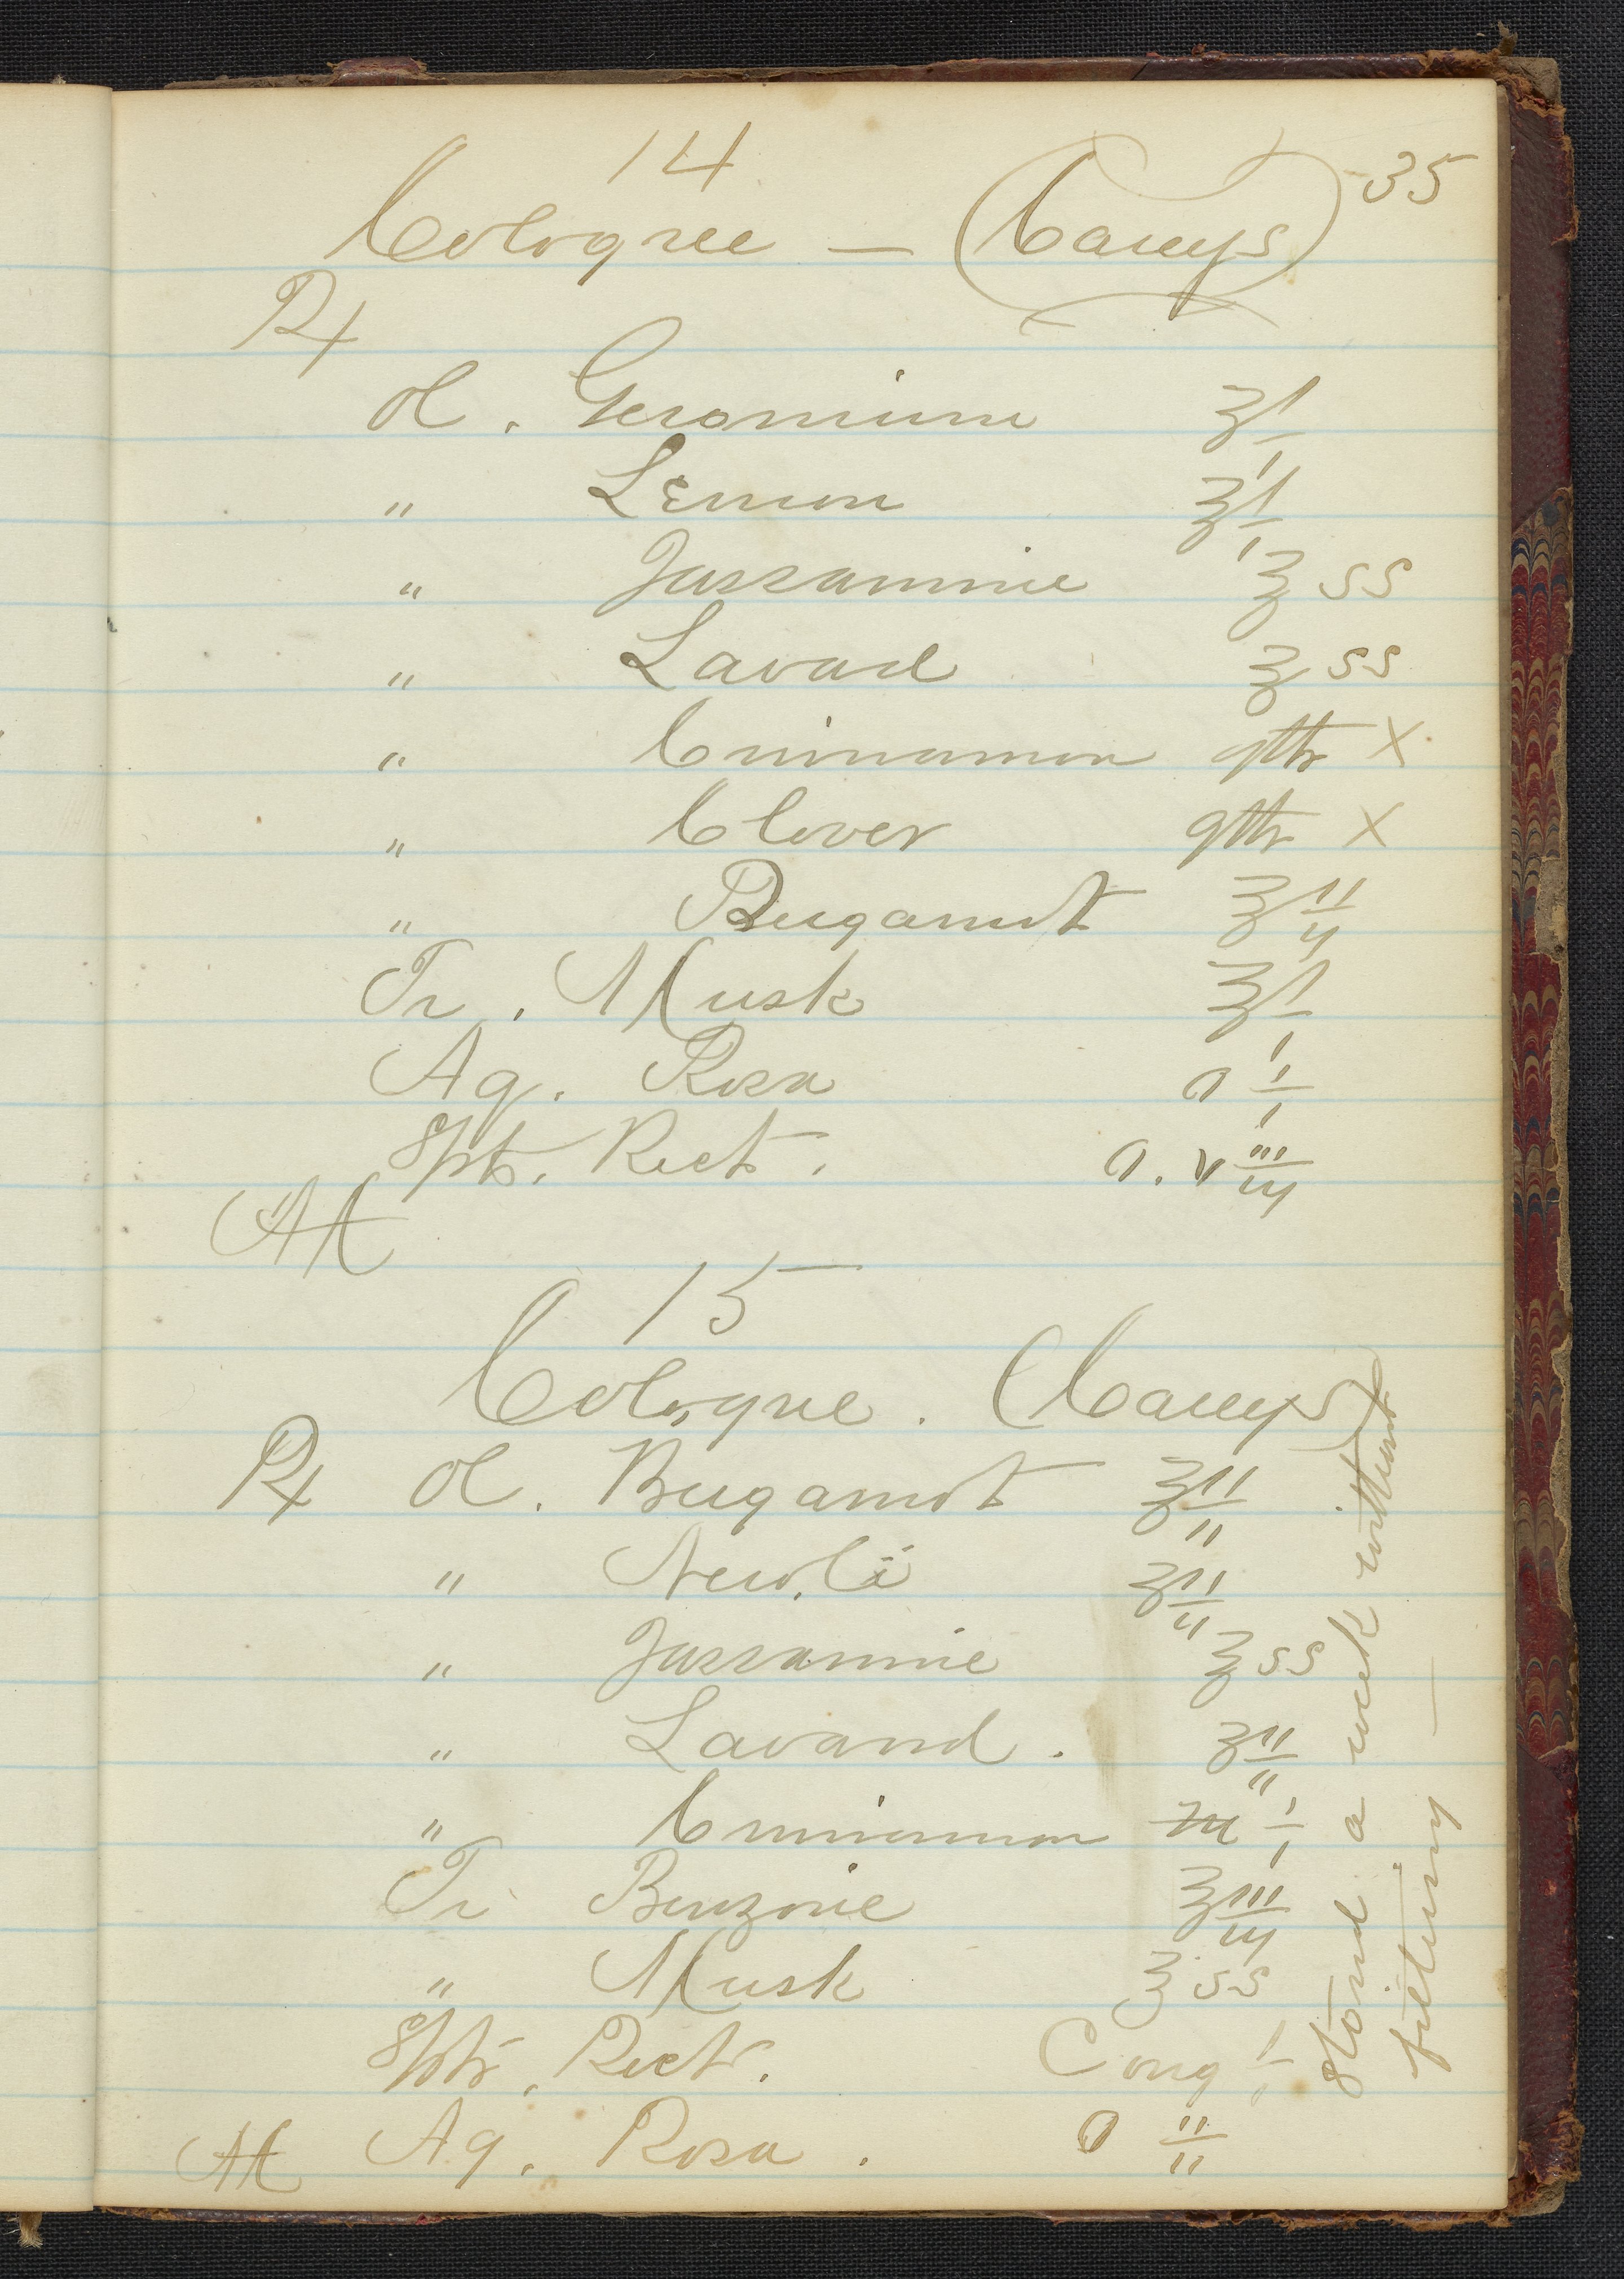 35
14
Cologne — (Careys)
Rx
Ol. Geranium ʒ i
" Lemon ʒ i
" Jassamine ʒ ss
" Lavad ʒ ss
" Cinnamon gtts X
" Clover gtts X
" Bergamot ʒ ii
Tr. Musk ʒ i
Aq. Rosa O i
Spts. Rect. O. viii
M
15
Cologne. (Careys)
Rx Ol. Bergamot ʒ ii
" Neroli ʒ ii
" Jassamine ʒ ss
" Lavand. ʒ ii
" Cinnamon ♏ i
Tr Benzoine ʒ iii
" Musk ʒ ss
Spts. Rect. Cong i
M Aq. Rosa. O ii
Stand a week without
filtering —